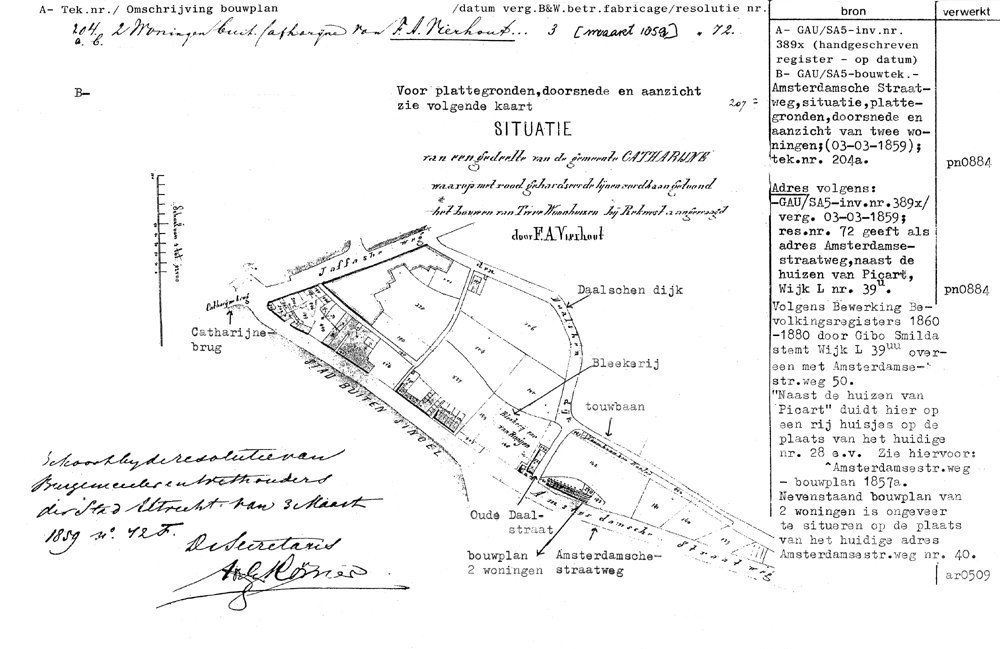 A- Tek.nr./ Omschrijving bouwplan /datum verg.B&W.betr.fabricage/resolutie nr.
204.
a. b. 2 Woningen buit. Catharijne van F. A. Vierhout... 3 [maart 1859] " 72.
B-
Voor plattegronden,doorsnede en aanzicht
zie volgende kaart
207 =
SITUATIE
van een gedeelte van de gemeente CATHARIJNE
waarop met rood gehardseerde lijnen wordt aangetoond
het bouwen van Twee Woonhuizen bij Rekwest aangevraagd
door F. A. Vierhout
Catharijne brug
Catharijne-
brug
Daalschen dijk
Bleekerij
touwbaan
STAD BUITEN SINGEL
Oude Daal-
straat
bouwplan
2 woningen
Amsterdamsche-
straatweg
Amsterdamsche Straatweg
Behoort bij de resolutie van
Burgemeester en Wethouders
der Stad Utrecht van 3 Maart
1859 no. 72 F.
De Secretaris
bron
verwerkt
A- GAU/SA5-inv.nr.
389x (handgeschreven
register - op datum)
B- GAU/SA5-bouwtek.-
Amsterdamsche Straat-
weg,situatie,platte-
gronden,doorsnede en
aanzicht van twee wo-
ningen;(03-03-1859);
tek.nr. 204a.
pn0884
Adres volgens:
-GAU/SA5-inv.nr.389x/
verg. 03-03-1859;
res.nr. 72 geeft als
adres Amsterdamse-
straatweg,naast de
huizen van Picart,
Wijk L nr. 39u.
pn0884
Volgens Bewerking Be-
volkingsregisters 1860
-1880 door Gibo Smilda
stemt Wijk L 39uu over-
een met Amsterdamse-
str.weg 50.
"Naast de huizen van
Picart" duidt hier op
een rij huisjes op de
plaats van het huidige
nr. 28 e.v. Zie hiervoor:
^Amsterdamsestr.weg
- bouwplan 1857a.
Nevenstaand bouwplan van
2 woningen is ongeveer
te situeren op de plaats
van het huidige adres
Amsterdamsestr.weg nr. 40.
ar0509